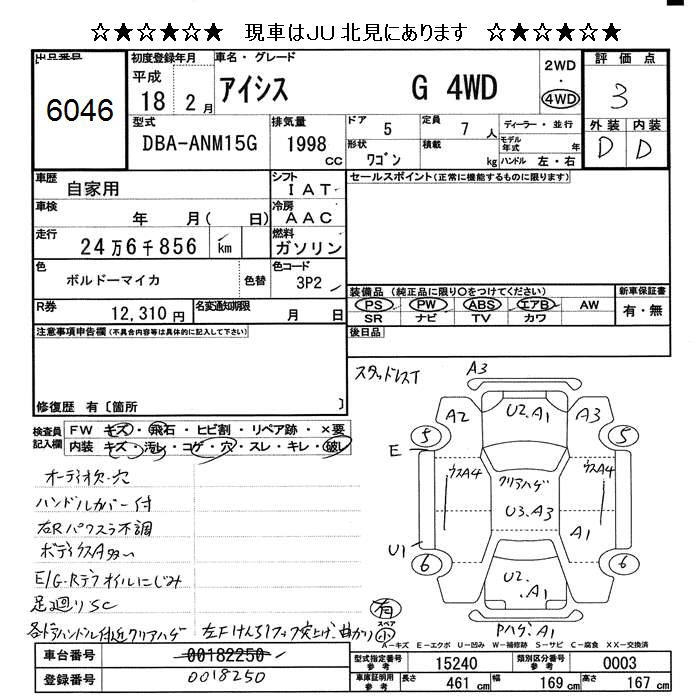 ☆★☆★☆★ 現車はJU北見にあります ☆★☆★☆★
出品番号
6046
初度登録年月
平成
18 2月
車名・グレード
アイシス G 4WD
2WD
・
4WD
評価点
3
型式
DBA-ANM15G
排気量
1998
cc
ドア 5
定員 7 人
形状 ワゴン
積載 kg
ディーラー・並行
モデル年式 年
ハンドル 左・右
外装 内装
D D
車歴
自家用
シフト
IAT
車検
年 月( 日)
冷房
AAC
走行
24万6千856 km
燃料
ガソリン
色
ボルドーマイカ
色替
色コード
3P2
R券
12,310円
名変通知期限
月 日
セールスポイント(正常に機能するものに限ります)
装備品 (純正品に限り○をつけてください)
PS PW ABS エアB AW
SR ナビ TV カワ
新車保証書
有・無
注意事項申告欄(不具合内容等は具体的に記入して下さい)
修復歴 有〔箇所 〕
後日品
スタッドレスT
検査員記入欄
FW キズ・飛石・ヒビ割・リペア跡・×要
内装 キズ・汚レ・コゲ・穴・スレ・キレ・破レ
オーディオ欠.穴
ハンドルカバー付
右Rパワスラ不調
ボディウスA多い
E/G・Rデフオイルにじみ
足廻りSC
各ドアハンドル付近クリアハゲ 左Fけん引フック突上げ、曲がり
A3
A2
U2.A1
A3
5
5
E
ウスA4
クリアハゲ
ウスA4
U3.A3
A1
U1
6
6
U2.A1
有
スペア
小
Pハゲ.A1
A-キズ E-エクボ U-凹み W-補修跡 S-サビ C-腐食 XX-交換済
車台番号
00182250
登録番号
0018250
型式指定番号
参考
15240
類別区分番号
参考
0003
車庫証明用
参考
長さ 461 cm
幅 169 cm
高さ 167 cm